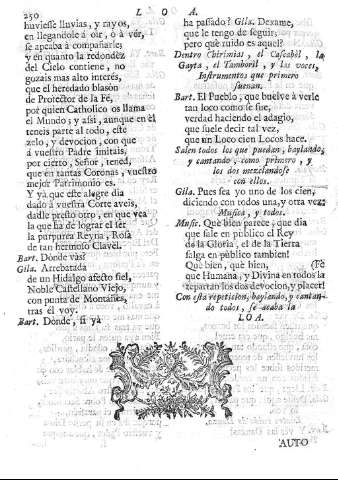 250
L O A.
huviesse lluvias, y rayos,
en llegandole à oìr, ò à vér,
se apeaba à compañarle;
y en quanto la redondèz
del Cielo contiene, no
gozais mas alto interés,
que el heredado blasón
de Protector de la Fé,
por quien Catholico os llama
el Mundo; y assi, aunque en èl
teneis parte al todo, este
zelo, y devocion, con que
à vuestro Padre imitais,
por cierto, Señor, tened,
que en tantas Coronas, vuestro
mejor Patrimonio es.
Y yà que este alegre dia
dado à vuestra Corte aveis,
dadle presto otro, en que vea
la que ha de lograr el ser
la purpurea Reyna, Rosa
de tan hermoso Clavèl.
Bart. Dónde vàs?
Gila. Arrebatada
de un Hidalgo afecto fiel,
Noble Castellano Viejo,
con punta de Montañès,
tras èl voy.
Bart. Dónde, si yà
ha passado? Gila. Dexame,
que le tengo de seguir;
pero què ruido es aquel?
Dentro Chirimias, el Cascabèl, la
Gayta, el Tamboril, y las voces,
Instrumentos que primero
suenan.
Bart. El Pueblo, que buelve à verle
tan loco como se fue,
verdad haciendo el adagio,
que suele decir tal vez,
que un Loco cien Locos hace.
Salen todos los que puedan, baylando,
y cantando, como primero, y
los dos mezclandose
con ellos.
Gila. Pues sea yo uno de los cien,
diciendo con todos una, y otra vez:
Musica, y todos.
Music. Què bien parece el dia
que sale en publico el Rey
de la Gloria, el de la Tierra
salga en público tambien!
Què bien, què bien, (Fè
que Humana, y Divina en todos la
repartan los dos devocion, y placer!
Con esta repeticion, baylando, y cantan-
do todos, se acaba la
LOA.
AUTO